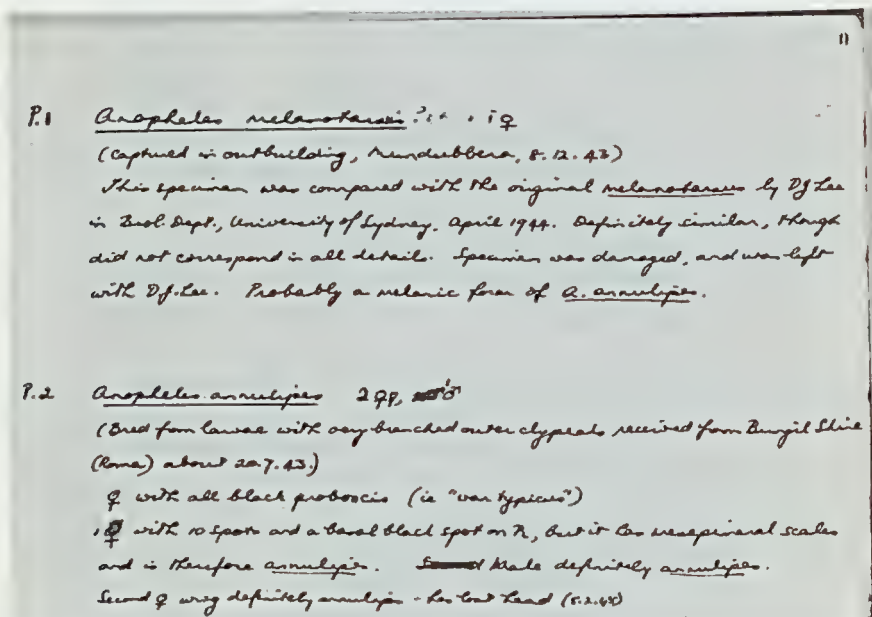 11
P.1 Anopheles melanotarsis ? 1♀
(Captured in outbuilding, Mundubbera, 8.12.43)
This specimen was compared with the original melanotarsus by DJ Lee
in Biol. Dept., University of Sydney, April 1944. Definitely similar, though
did not correspond in all details. Specimen was damaged, and was left
with DJ. Lee. Probably a melanic form of A. annulipes.
P.2 Anopheles annulipes 2♀♀, 1♂
(Bred from larvae with very branched outer clypeals received from Bungil Shire
(Roma) about 20.7.43.)
♀ with all black proboscis (ie "var typicus")
1♀ with 10 spots and a basal black spot on R, but it has mesepimeral scales
and is therefore annulipes. Male definitely annulipes.
Second ♀ wing definitely annulipes - has lost head (5.2.45)